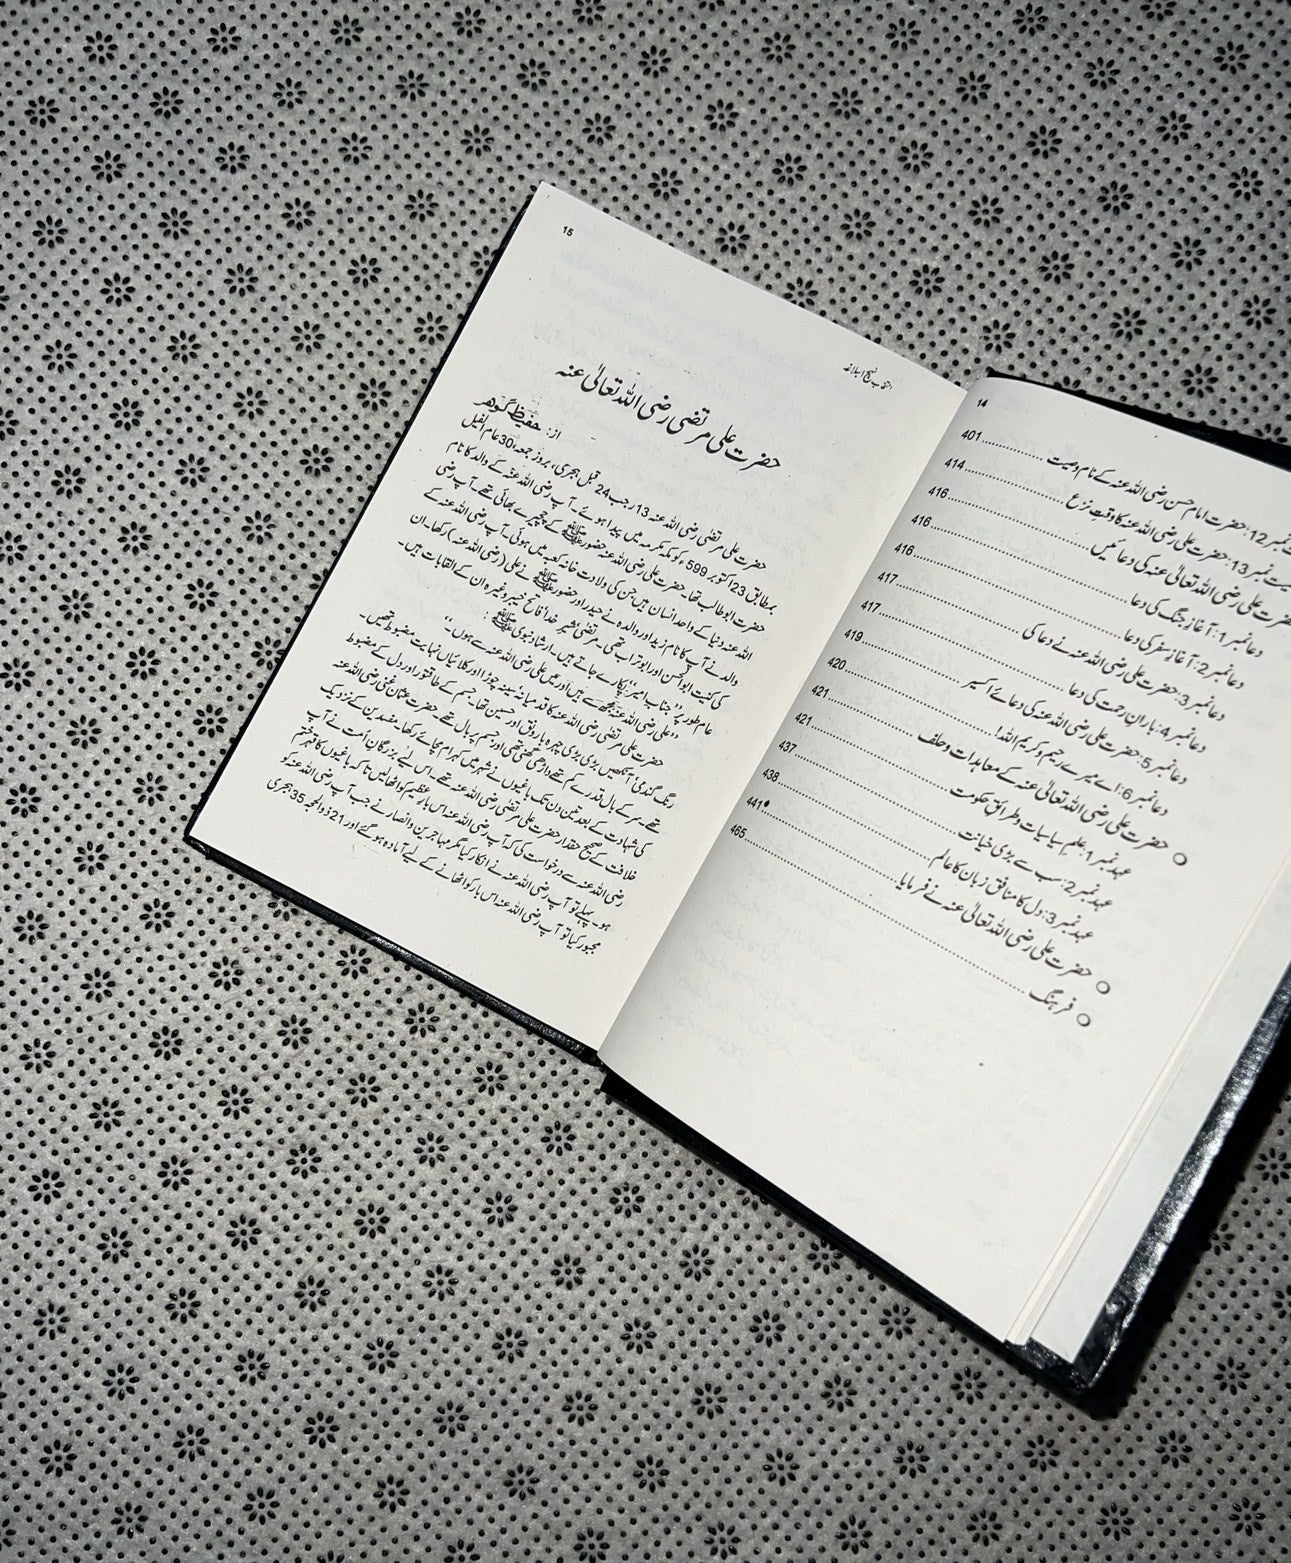 14
نمبر12: حضرت امام حسن رضی اللہ عنہ کے نام وصیت 401
نمبر13: حضرت علی رضی اللہ عنہ کا وقتِ نزع 414
حضرت علی رضی اللہ تعالیٰ عنہ کی دعائیں 416
دعا نمبر1: آغازِ جنگ کی دعا 416
دعا نمبر2: آغازِ سفر کی دعا 416
دعا نمبر3: حضرت علی رضی اللہ عنہ نے دعا کی 417
دعا نمبر4: بارانِ رحمت کی دعا 417
دعا نمبر5: حضرت علی رضی اللہ عنہ کی دعائے اکسیر 419
دعا نمبر6: اے میرے رحیم و کریم اللہ! 420
حضرت علی رضی اللہ تعالیٰ عنہ کے معاہدات و حلف 421
عہد نمبر1: علمِ سیاسیات و طرائقِ حکومت 421
عہد نمبر2: سب سے بڑی خیانت 437
عہد نمبر3: دل کا منافق زبان کا عالم 438
حضرت علی رضی اللہ تعالیٰ عنہ نے فرمایا 441
فرہنگ 465
15
انتخاب نہج البلاغہ
حضرت علی مرتضیٰ رضی اللہ تعالیٰ عنہ
از: حفیظ گوہر
حضرت علی مرتضیٰ رضی اللہ عنہ 13 رجب 24 قبل ہجری، بروز جمعہ، 30 عام الفیل
بمطابق 23 اکتوبر 599ء کو مکہ مکرمہ میں پیدا ہوئے۔ آپ رضی اللہ عنہ کے والد کا نام
حضرت ابو طالب تھا۔ حضرت علی رضی اللہ عنہ حضور ﷺ کے چچیرے بھائی تھے۔ آپ رضی
اللہ عنہ دنیا کے واحد انسان ہیں جن کی ولادت خانہ کعبہ میں ہوئی۔ آپ رضی اللہ عنہ کے
والد نے آپ کا نام زید اور والدہ نے حیدر اور حضور ﷺ نے علی (رضی اللہ عنہ) رکھا۔ ان
کی کنیت ابوالحسن اور ابو تراب تھی۔ مرتضیٰ، شیرِ خدا، فاتح خیبر وغیرہ ان کے القابات ہیں۔
عام طور پر "جناب امیر" پکارے جاتے ہیں۔ ارشادِ نبوی ﷺ:
"علی رضی اللہ عنہ مجھ سے ہیں اور میں علی رضی اللہ عنہ سے ہوں۔"
حضرت علی مرتضیٰ رضی اللہ عنہ کا قد میانہ سینہ چوڑا اور کلائیاں نہایت مضبوط تھیں۔
رنگ گندمی، آنکھیں بڑی بڑی چہرہ بارونق اور حسین تھا۔ جسم کے طاقتور اور دل کے مضبوط
تھے۔ سر کے بال قدرے کم تھے داڑھی گھنی تھی اور جسم پر بال تھے۔ حضرت عثمان غنی رضی اللہ عنہ
کی شہادت کے بعد تین دن تک باغیوں نے شہر میں کہرام مچائے رکھا۔ مفسدین کے نزدیک
خلافت کے صحیح حقدار حضرت علی مرتضیٰ رضی اللہ عنہ تھے۔ اس لیے بزرگانِ اُمت نے آپ
رضی اللہ عنہ سے درخواست کی کہ آپ رضی اللہ عنہ اس بارِ عظیم کو اٹھالیں تاکہ باغیوں کا قہر ختم
ہو۔ پہلے تو آپ رضی اللہ عنہ نے انکار کیا مگر مہاجرین و انصار نے جب آپ رضی اللہ عنہ کو
مجبور کیا تو آپ رضی اللہ عنہ اس بار کو اٹھانے کے لیے آمادہ ہو گئے اور 21 ذوالحجہ 35 ہجری